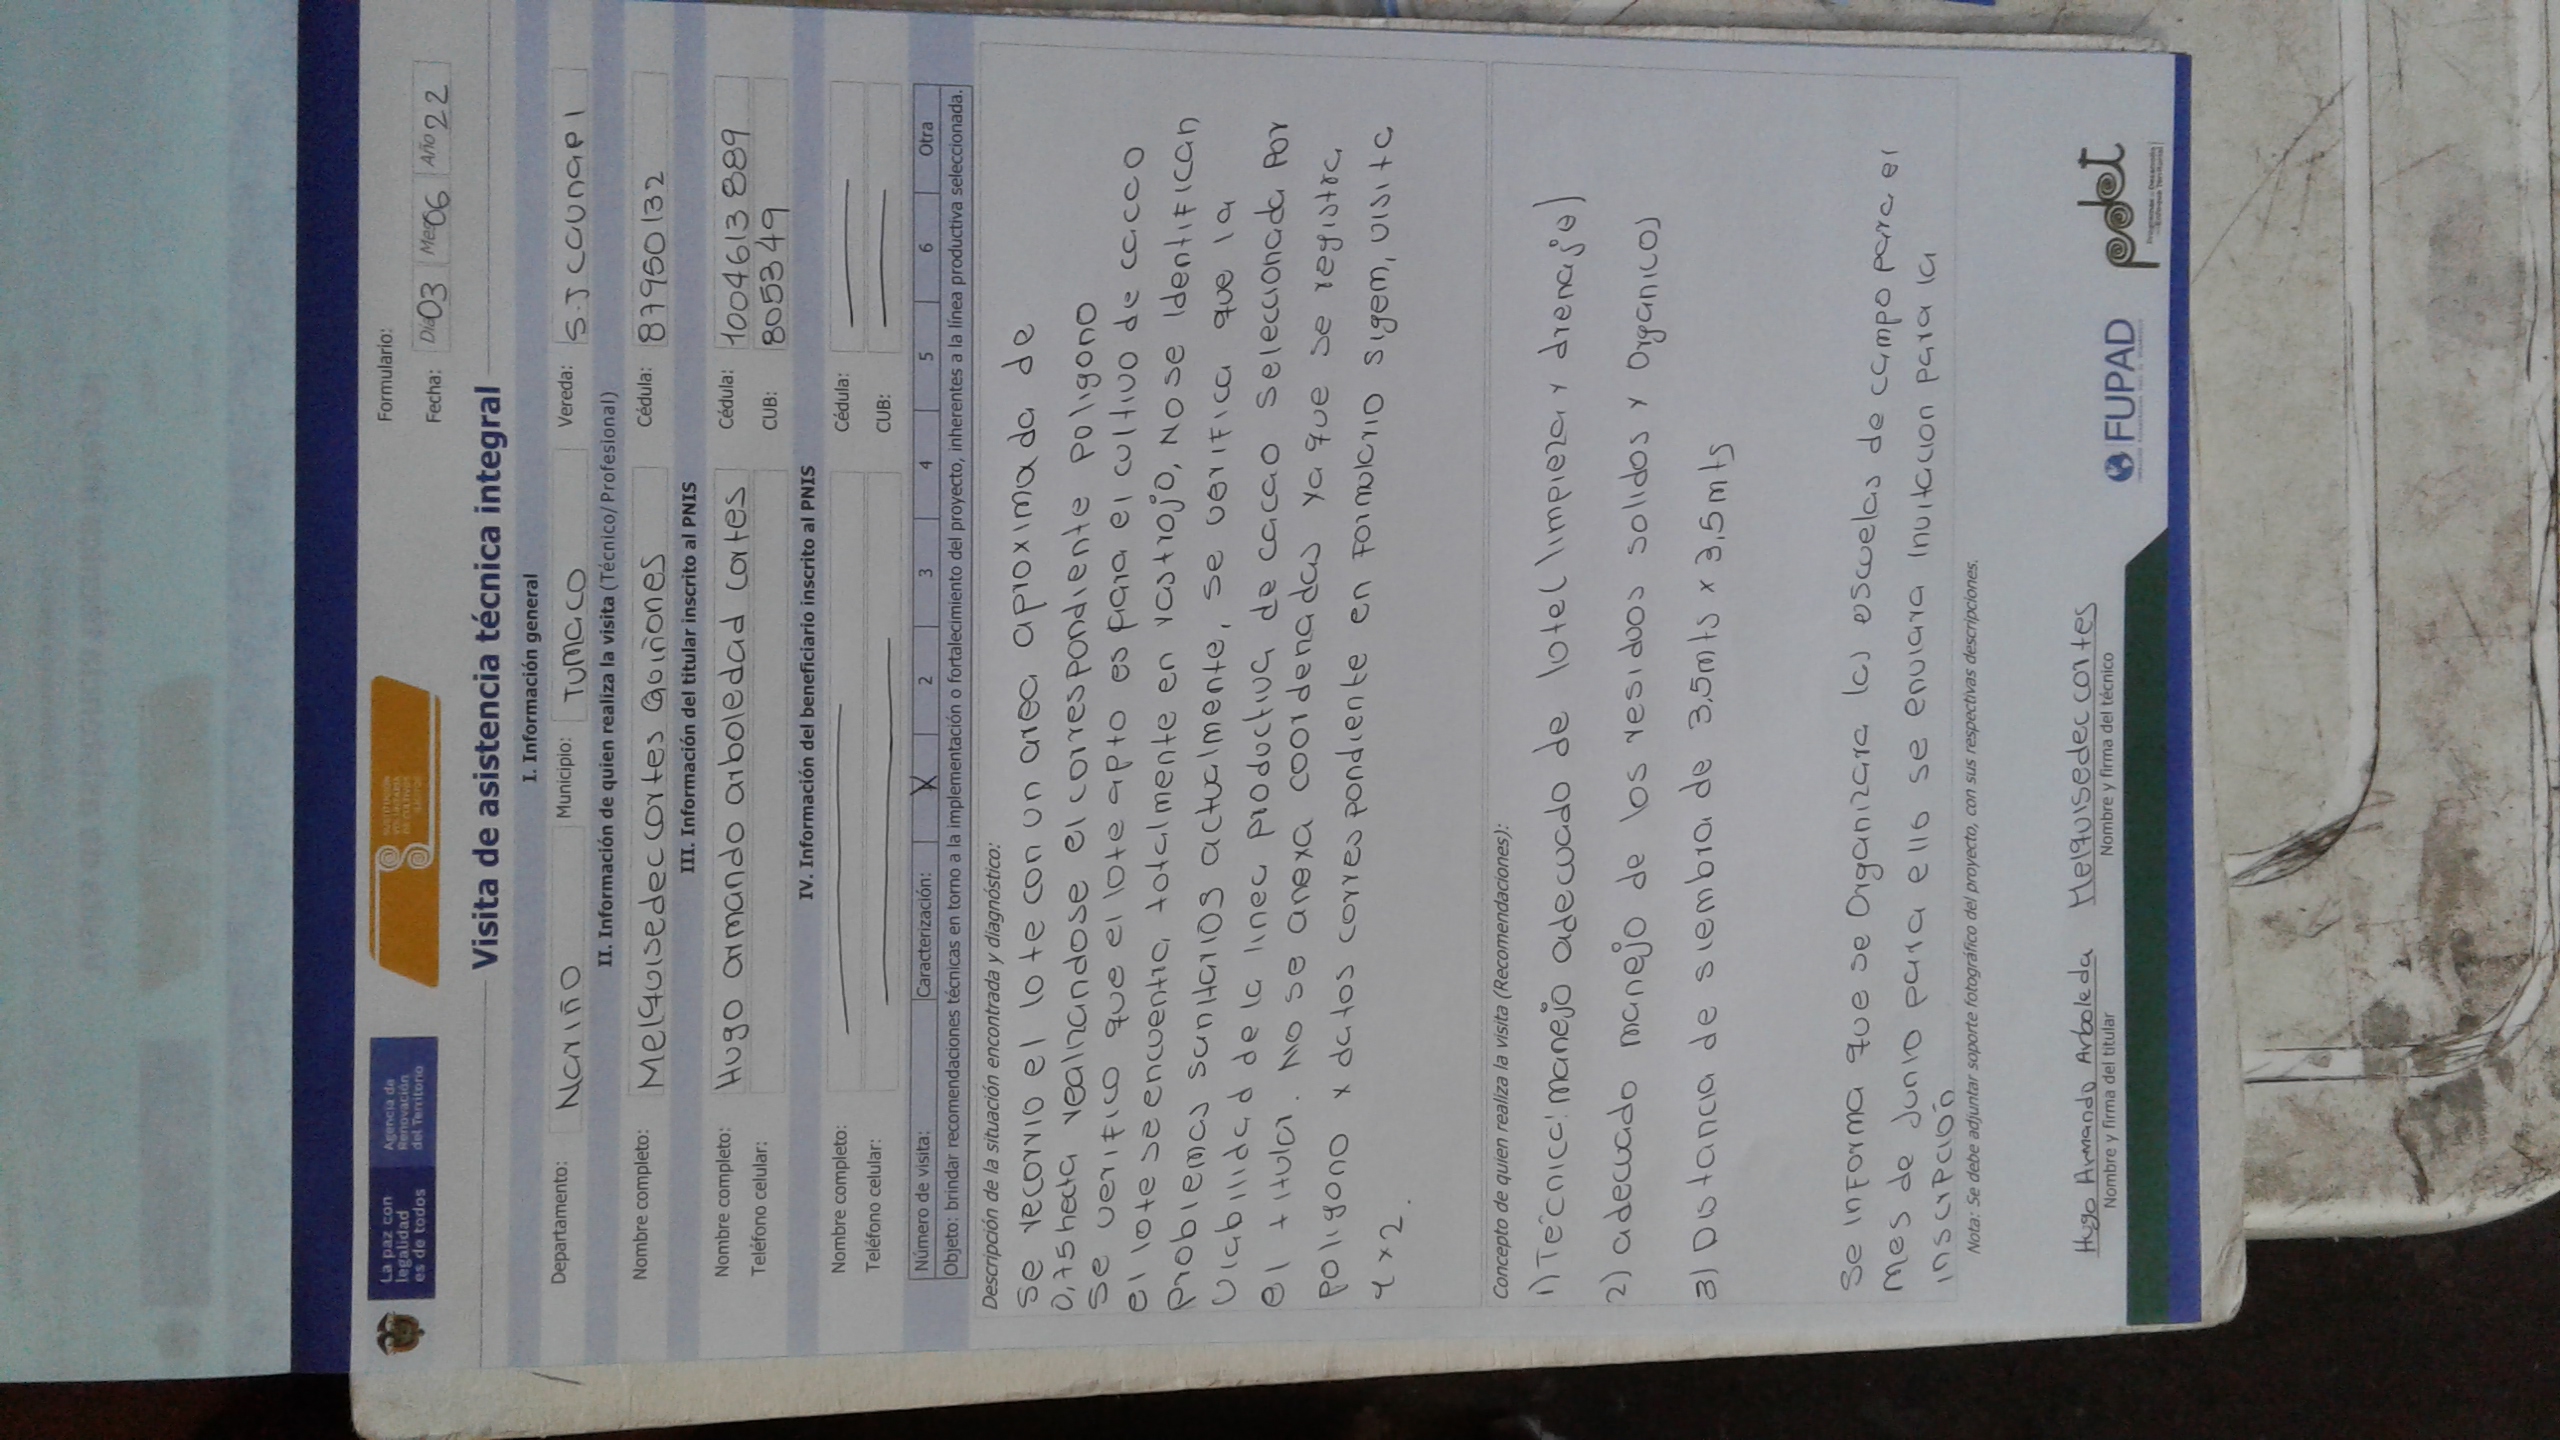 La paz con
legalidad
es de todos
Agencia de
Renovación
del Territorio
SUSTITUCIÓN
VOLUNTARIA
DE CULTIVOS
ILÍCITOS
Formulario:
Fecha: Día 03 Mes 06 Año 22
Visita de asistencia técnica integral
I. Información general
Departamento: Nariño Municipio: Tumaco Vereda: S.J Caunapi
II. Información de quien realiza la visita (Técnico/Profesional)
Nombre completo: Melquisedec cortes Quiñones Cédula: 87950132
III. Información del titular inscrito al PNIS
Nombre completo: Hugo armando arboledad cortes Cédula: 1004613889
Teléfono celular: CUB: 805349
IV. Información del beneficiario inscrito al PNIS
Nombre completo: Cédula:
Teléfono celular: CUB:
Número de visita: Caracterización: X 2 3 4 5 6 Otra
Objeto: brindar recomendaciones técnicas en torno a la implementación o fortalecimiento del proyecto, inherentes a la línea productiva seleccionada.
Descripción de la situación encontrada y diagnóstico:
Se recorrio el lote con un area aproximada de
0,75 hecta realizandose el correspondiente poligono
Se verifico que el lote apto es para el cultivo de cacao
el lote se encuentra totalmente en rastrojo, No se Identifican
problemas sanitarios actualmente, se verifica que la
viabilidad de la linea productiva de cacao seleccionada por
el titular. No se anexa coordenadas ya que se registra
poligono x datos correspondiente en formulario sigem, visita
1 x 2.
Concepto de quien realiza la visita (Recomendaciones):
1) Técnica: manejo adecuado de lote (limpieza y drenaje)
2) adecuado manejo de los residuos solidos y Organicos
3) Distancia de siembra de 3,5mts x 3,5mts
Se informa que se Organizara las escuelas de campo para el
Mes de Junio para ello se enviara invitacion para la
inscripción
Nota: Se debe adjuntar soporte fotográfico del proyecto, con sus respectivas descripciones.
Hugo Armando Arboleda Melquisedec cortes
Nombre y firma del titular Nombre y firma del técnico
FUPAD
pdet